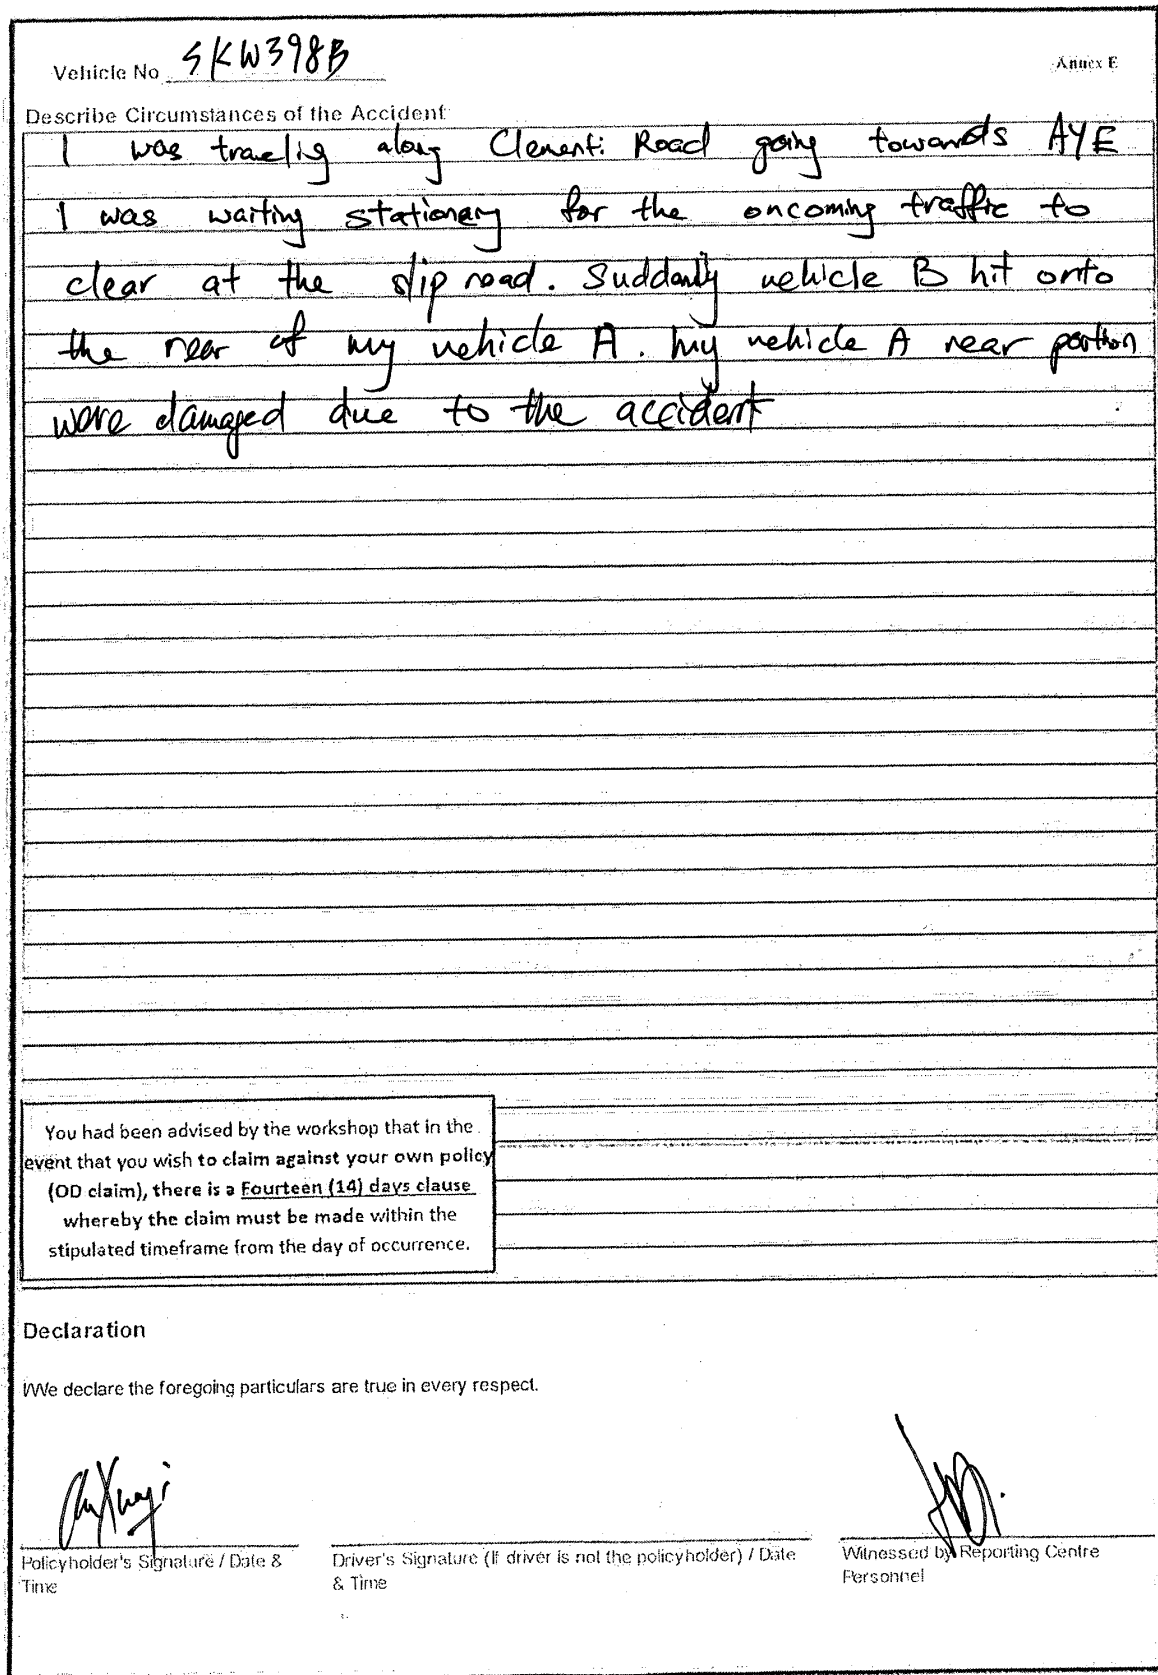 Vehicle No SKW398B
Annex E
Describe Circumstances of the Accident
I was travelig along Clementi Road going towards AYE
I was waiting stationary for the oncoming traffic to
clear at the slip road. Suddenly vehicle B hit onto
the rear of my vehicle A. My vehicle A rear portion
were damaged due to the accident
You had been advised by the workshop that in the
event that you wish to claim against your own policy
(OD claim), there is a Fourteen (14) days clause
whereby the claim must be made within the
stipulated timeframe from the day of occurrence.
Declaration
I/We declare the foregoing particulars are true in every respect.
Policyholder's Signature / Date &
Time
Driver's Signature (If driver is not the policyholder) / Date
& Time
Witnessed by Reporting Centre
Personnel